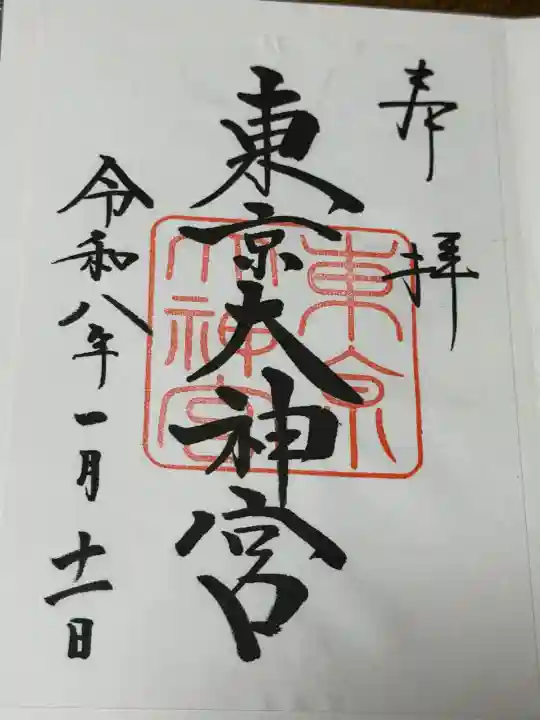 奉拝
東京大神宮
東京
大神宮
令和八年一月十一日